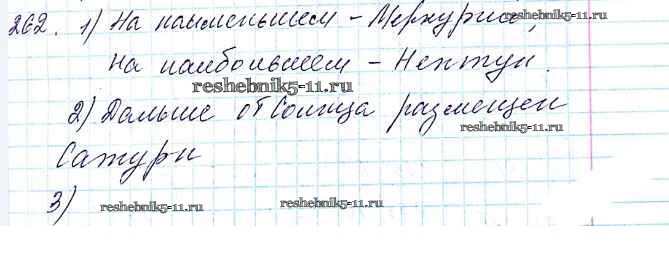 262. 1) На наименьшем - Меркурий,
reshebnik5-11.ru
На наибольшем - Нептун.
reshebnik5-11.ru
2) Дальше от Солнца размещен
reshebnik5-11.ru
Сатурн
3)
reshebnik5-11.ru
reshebnik5-11.ru